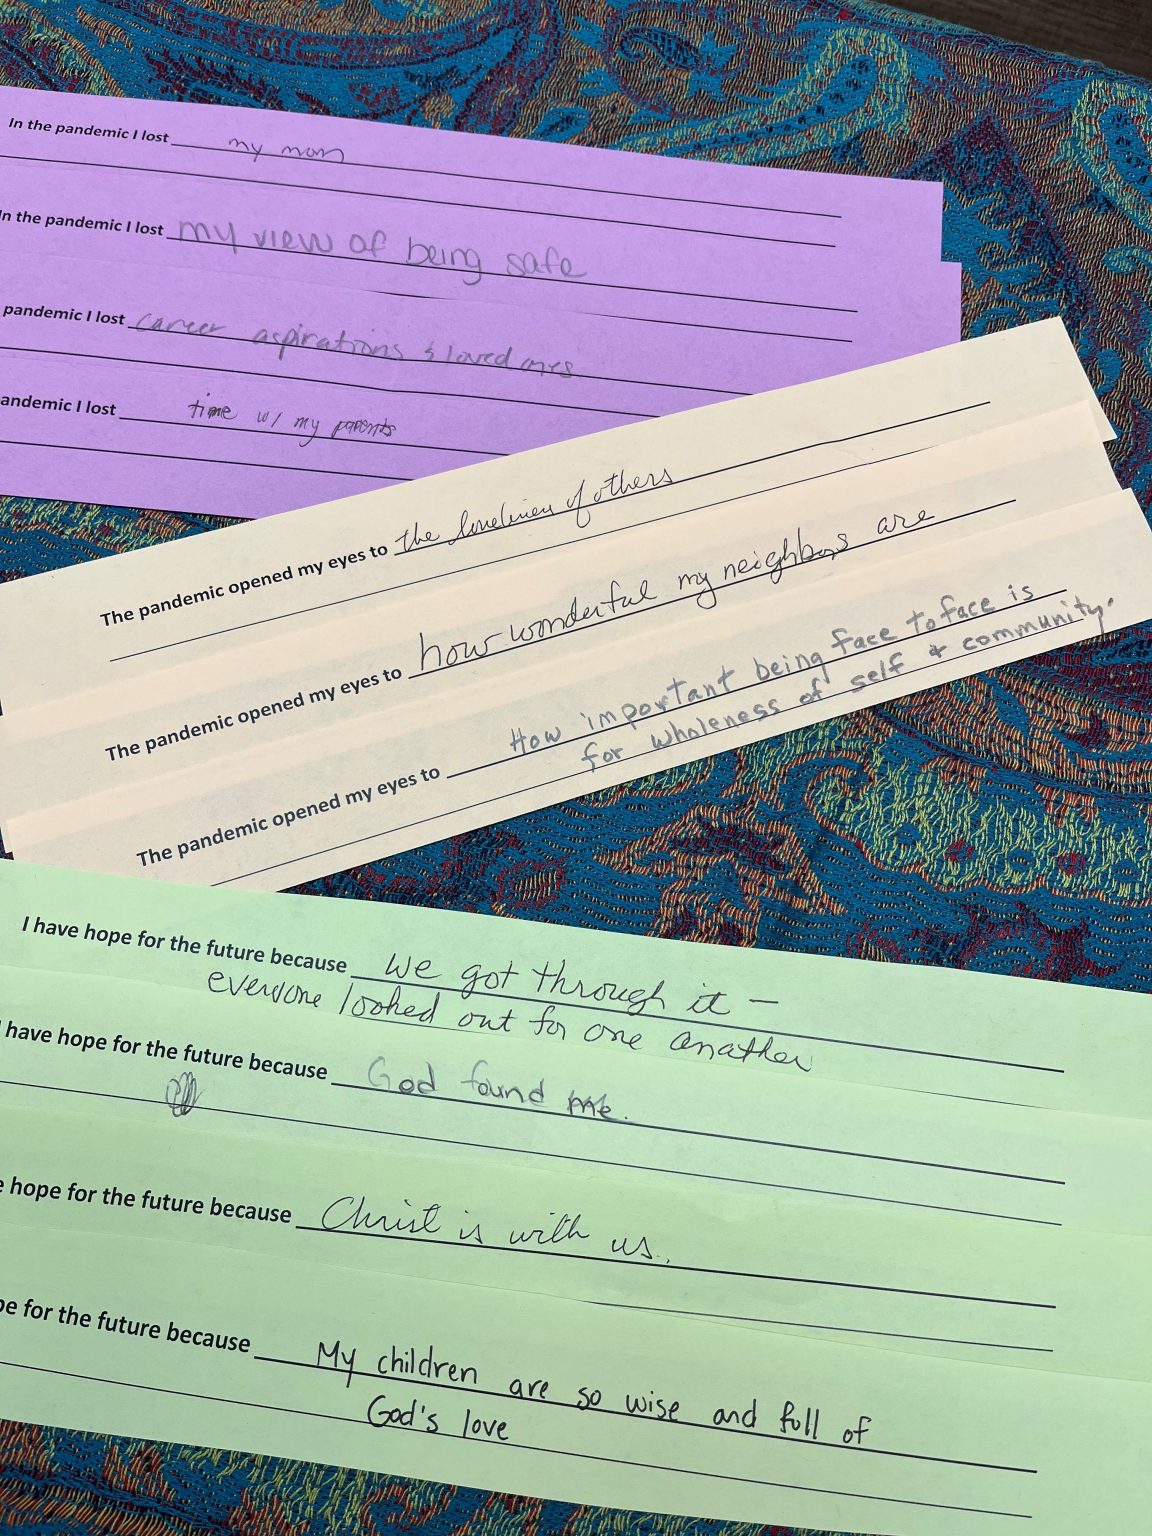 In the pandemic I lost my mom
In the pandemic I lost my view of being safe
pandemic I lost career aspirations & loved ones
andemic I lost time w/ my parents
The pandemic opened my eyes to the loneliness of others
The pandemic opened my eyes to how wonderful my neighbors are
The pandemic opened my eyes to How important being face to face is
for wholeness of self & community.
I have hope for the future because we got through it –
everyone looked out for one another
I have hope for the future because God found me.
e hope for the future because Christ is with us.
pe for the future because My children are so wise and full of
God's love